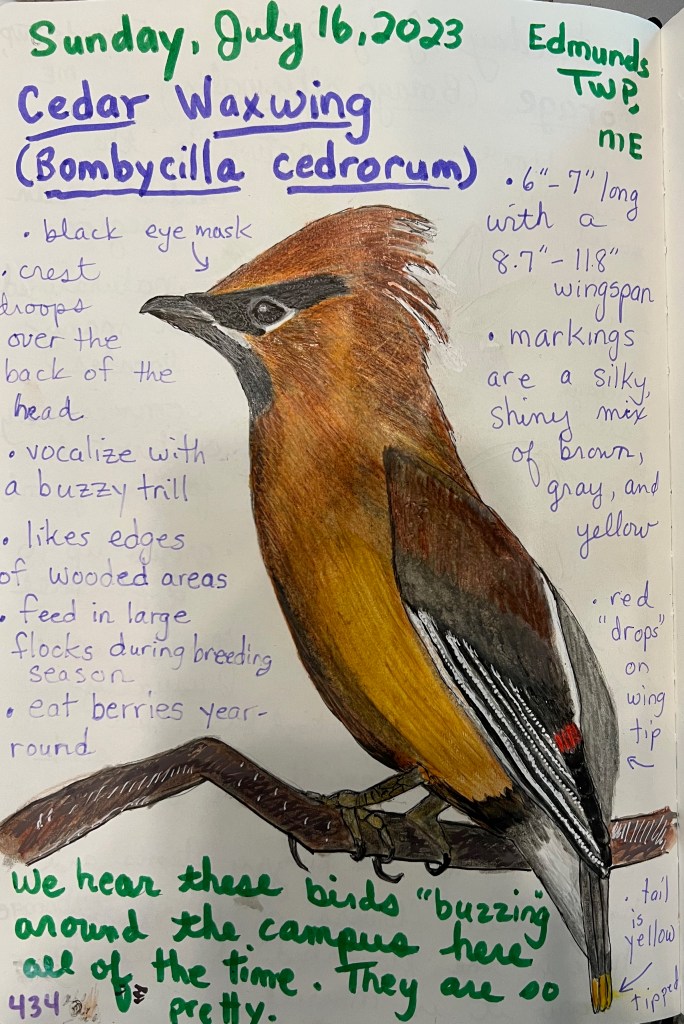 Sunday, July 16, 2023
Edmunds
TWP,
ME
Cedar Waxwing
(Bombycilla cedrorum)
• black eye mask
• crest
droops
over the
back of the
head
• vocalize with
a buzzy trill
• likes edges
of wooded areas
• feed in large
flocks during breeding
season
• eat berries year-
round
• 6"-7" long
with a
8.7"-11.8"
wingspan
• markings
are a silky,
shiny mix
of brown,
gray, and
yellow
• red
"drops"
on
wing
tip
• tail
is
yellow
tipped
We hear these birds "buzzing"
around the campus here
all of the time. They are so
pretty.
434